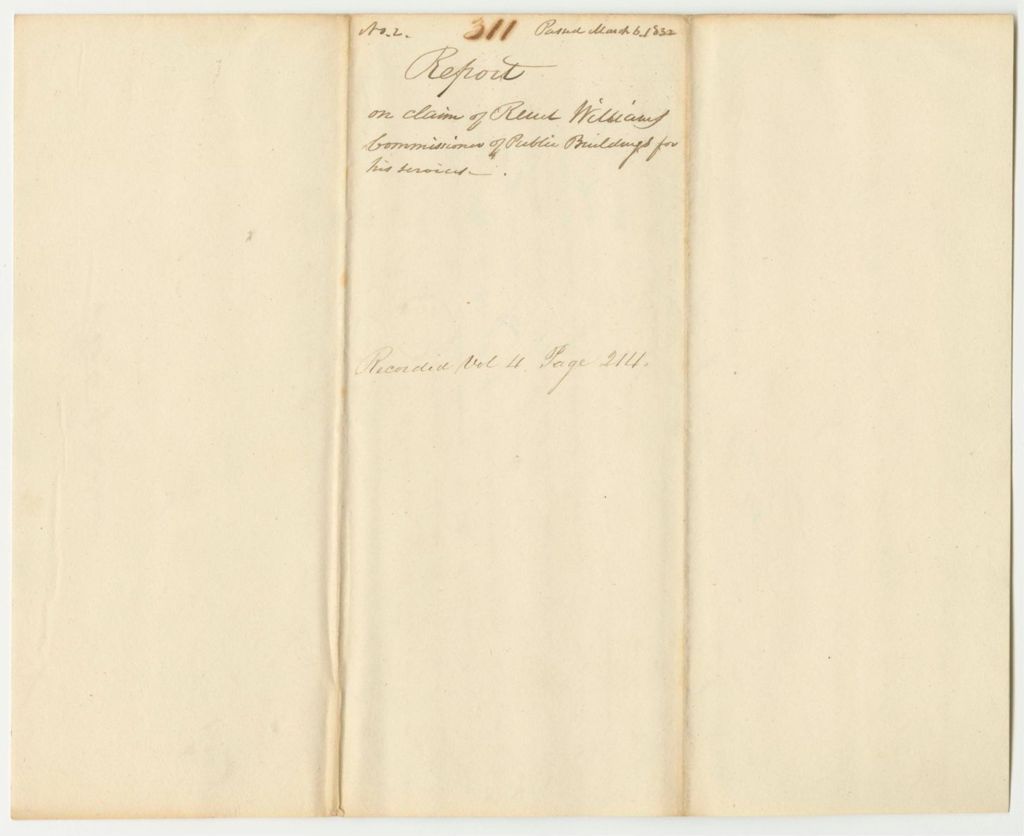 No. 2. 311 Passed March 6, 1832
Report
on claim of Reuel Williams
Commissioner of Public Buildings for
his services.
Recorded Vol 4. Page 214.